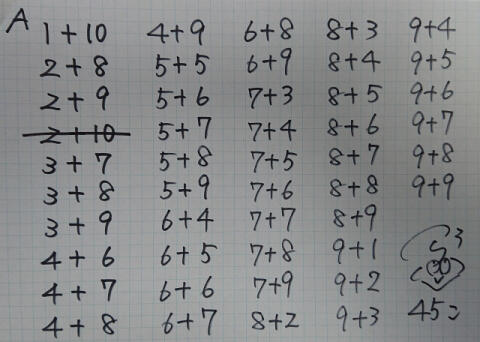 A
1+10 4+9 6+8 8+3 9+4
2+8 5+5 6+9 8+4 9+5
2+9 5+6 7+3 8+5 9+6
2+10 5+7 7+4 8+6 9+7
3+7 5+8 7+5 8+7 9+8
3+8 5+9 7+6 8+8 9+9
3+9 6+4 7+7 8+9
4+6 6+5 7+8 9+1
4+7 6+6 7+9 9+2
4+8 6+7 8+2 9+3
45